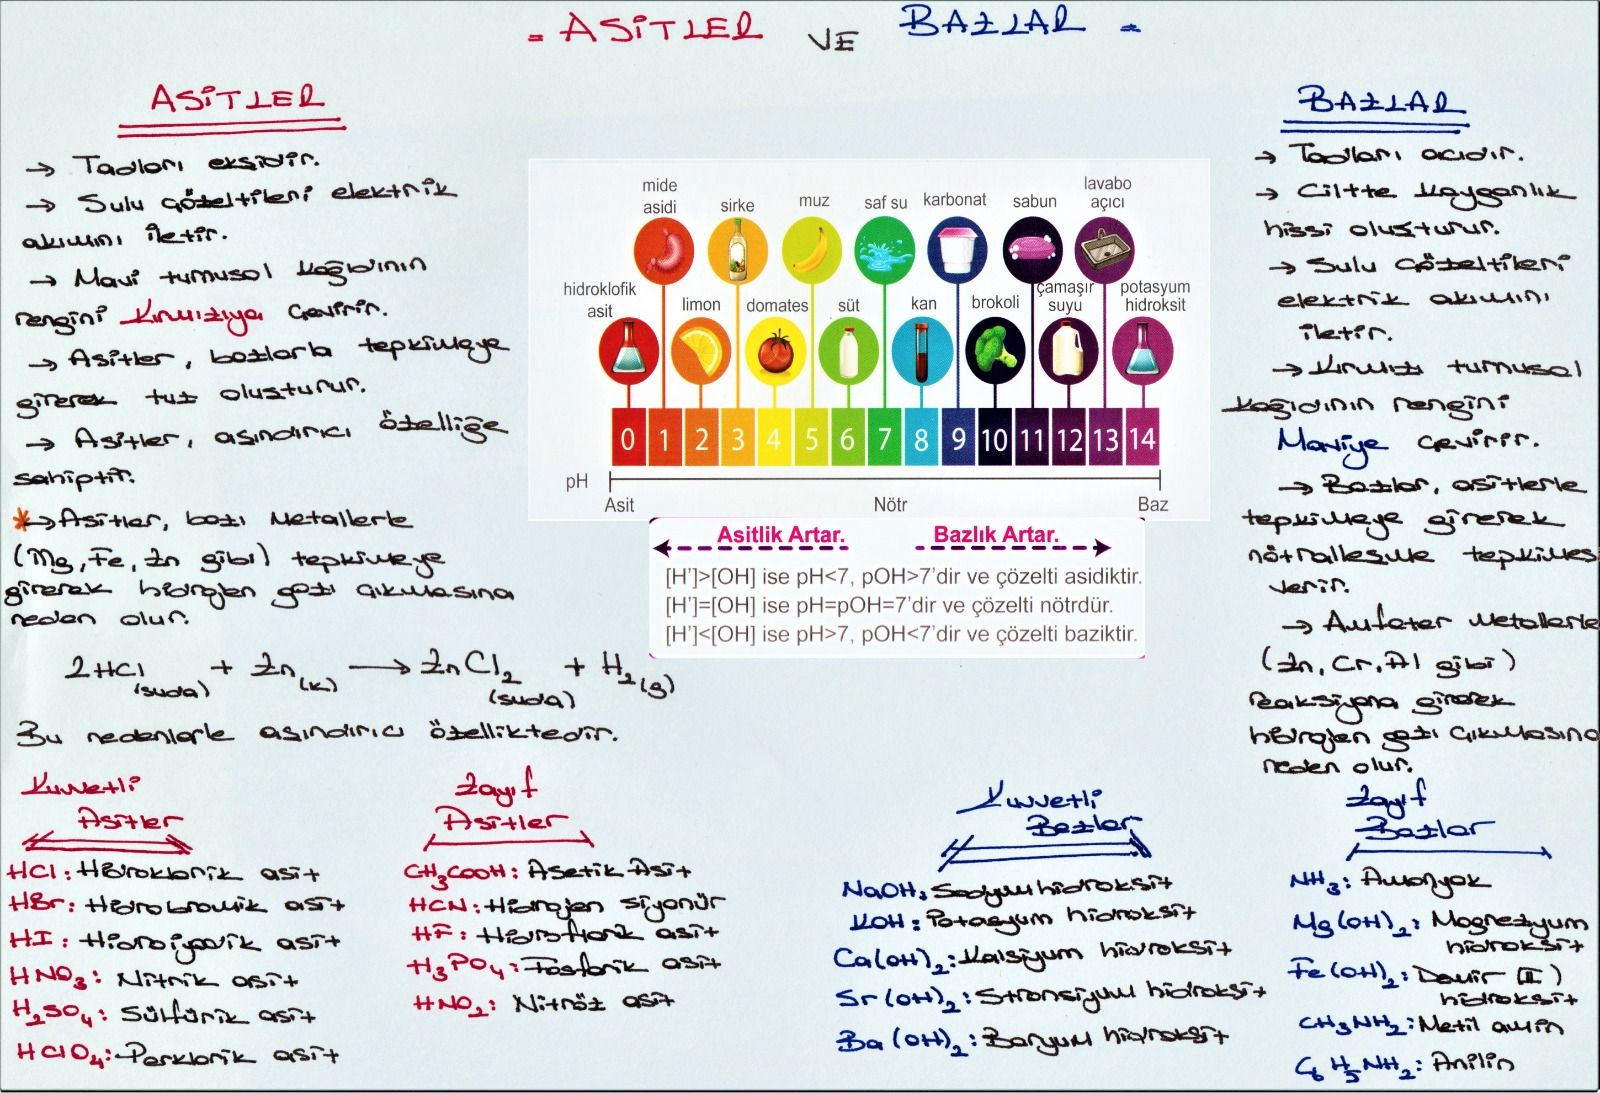 = ASİTLER VE BAZLAR =
ASİTLER
→ Tadları ekşidir.
→ Sulu çözeltileri elektrik
akımını iletir.
→ Mavi turnusol kağıdının
rengini kırmızıya çevirir.
→ Asitler, bazlarla tepkimeye
girerek tuz oluşturur.
→ Asitler, aşındırıcı özelliğe
sahiptir.
*→ Asitler, bazı metallerle
(Mg, Fe, Zn gibi) tepkimeye
girerek hidrojen gazı çıkmasına
neden olur.
2HCl(suda) + Zn(k) → ZnCl₂(suda) + H₂(g)
Bu nedenlerle aşındırıcı özelliktedir.
mide
asidi
sirke
muz
saf su
karbonat
sabun
lavabo
açıcı
hidroklofik
asit
limon
domates
süt
kan
brokoli
çamaşır
suyu
potasyum
hidroksit
0 1 2 3 4 5 6 7 8 9 10 11 12 13 14
pH
Asit Nötr Baz
Asitlik Artar. Bazlık Artar.
[H']>[OH] ise pH<7, pOH>7'dir ve çözelti asidiktir.
[H']=[OH] ise pH=pOH=7'dir ve çözelti nötrdür.
[H']<[OH] ise pH>7, pOH<7'dir ve çözelti baziktir.
BAZLAR
→ Tadları acıdır.
→ Ciltte kayganlık
hissi oluşturur.
→ Sulu çözeltileri
elektrik akımını
iletir.
→ Kırmızı turnusol
kağıdının rengini
Maviye çevirir.
→ Bazlar, asitlerle
tepkimeye girerek
nötralleşme tepkimes
verir.
→ Amfoter metallerle
(Zn, Cr, Al gibi)
reaksiyona girerek
hidrojen gazı çıkmasına
neden olur.
Kuvvetli
Asitler
HCl: Hidroklorik asit
HBr: Hidrobromik asit
HI: Hidroiyodik asit
HNO₃: Nitrik asit
H₂SO₄: Sülfürik asit
HClO₄: Perklorik asit
Zayıf
Asitler
CH₃COOH: Asetik Asit
HCN: Hidrojen siyanür
HF: Hidroflorik asit
H₃PO₄: Fosforik asit
HNO₂: Nitröz asit
Kuvvetli
Bazlar
NaOH: Sodyum hidroksit
KOH: Potasyum hidroksit
Ca(OH)₂: Kalsiyum hidroksit
Sr(OH)₂: Stronsiyum hidroksit
Ba(OH)₂: Baryum hidroksit
Zayıf
Bazlar
NH₃: Amonyak
Mg(OH)₂: Magnezyum
hidroksit
Fe(OH)₂: Demir (II)
hidroksit
CH₃NH₂: Metil amin
C₆H₅NH₂: Anilin